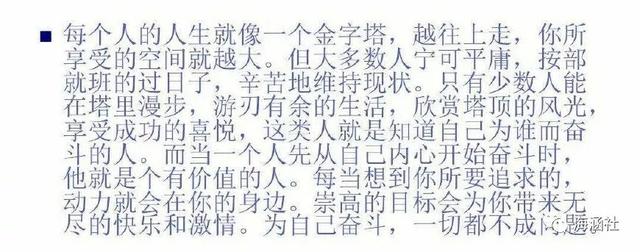 每个人的人生就像一个金字塔，越往上走，你所
享受的空间就越大。但大多数人宁可平庸，按部
就班的过日子，辛苦地维持现状。只有少数人能
在塔里漫步，游刃有余的生活，欣赏塔顶的风光，
享受成功的喜悦，这类人就是知道自己为谁而奋
斗的人。而当一个人先从自己内心开始奋斗时，
他就是个有价值的人。每当想到你所要追求的，
动力就会在你的身边。崇高的目标会为你带来无
尽的快乐和激情。为自己奋斗，一切都不成问题。
海涵社